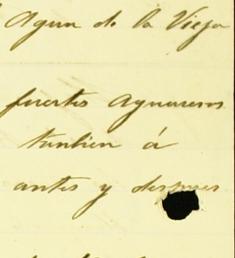 Agua de la Vieja
fuertes aguaceros
tanbien á
antes y despues